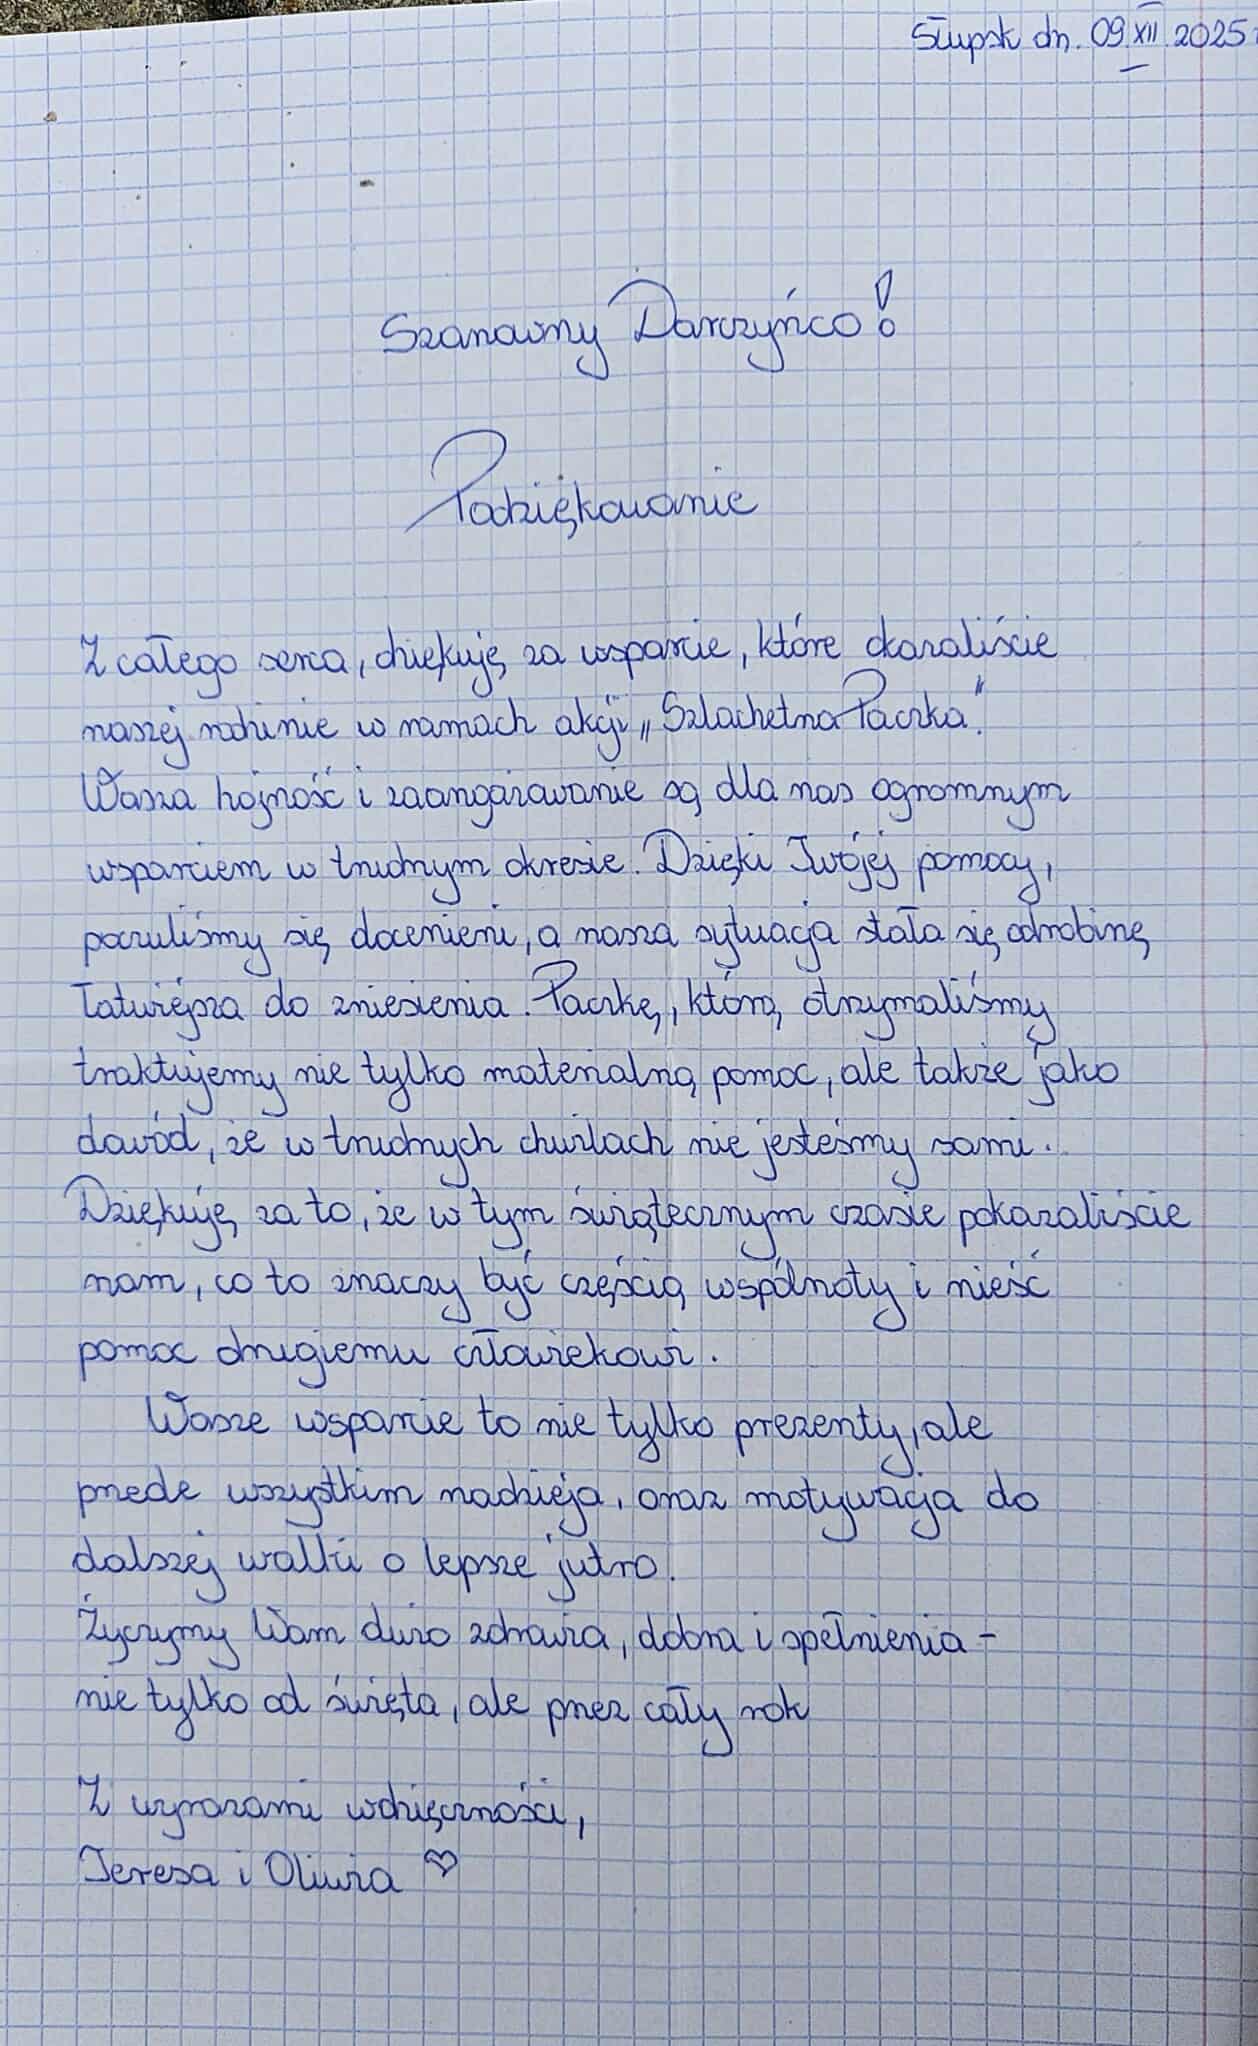 Słupsk dn. 09 XII 2025r
Szanowny Darczyńco!
Podziękowanie
Z całego serca, dziękuję za wsparcie, które okazaliście
naszej rodzinie w ramach akcji „Szlachetna Paczka".
Wasza hojność i zaangażowanie są dla nas ogromnym
wsparciem w trudnym okresie. Dzięki Twojej pomocy,
poczuliśmy się docenieni, a nasza sytuacja stała się odrobinę
łatwiejsza do zniesienia. Paczkę, którą otrzymaliśmy
traktujemy nie tylko materialną pomoc, ale także jako
dowód, że w trudnych chwilach nie jesteśmy sami.
Dziękuję za to, że w tym świątecznym czasie pokazaliście
nam, co to znaczy być częścią wspólnoty i nieść
pomoc drugiemu człowiekowi.
Wasze wsparcie to nie tylko prezenty, ale
przede wszystkim nadzieja, oraz motywacja do
dalszej walki o lepsze jutro.
Życzymy Wam dużo zdrowia, dobra i spełnienia -
nie tylko od święta, ale przez cały rok
Z wyrazami wdzięczności,
Teresa i Oliwia ♡